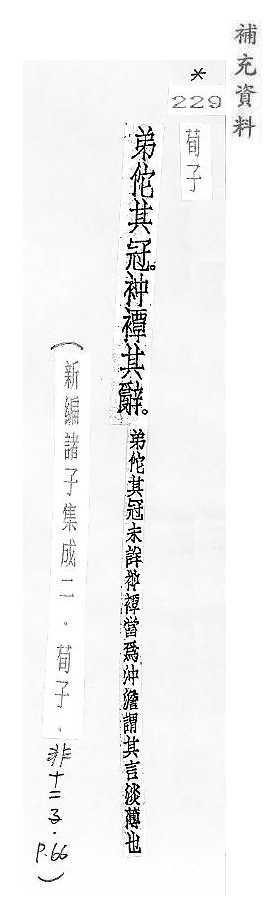 補充資料
*
229
荀子
弟佗其冠。衶禫其辭。弟佗其冠未詳衶禫當爲沖澹謂其言淡薄也
（新編諸子集成二。荀子。非十二子.P.66）